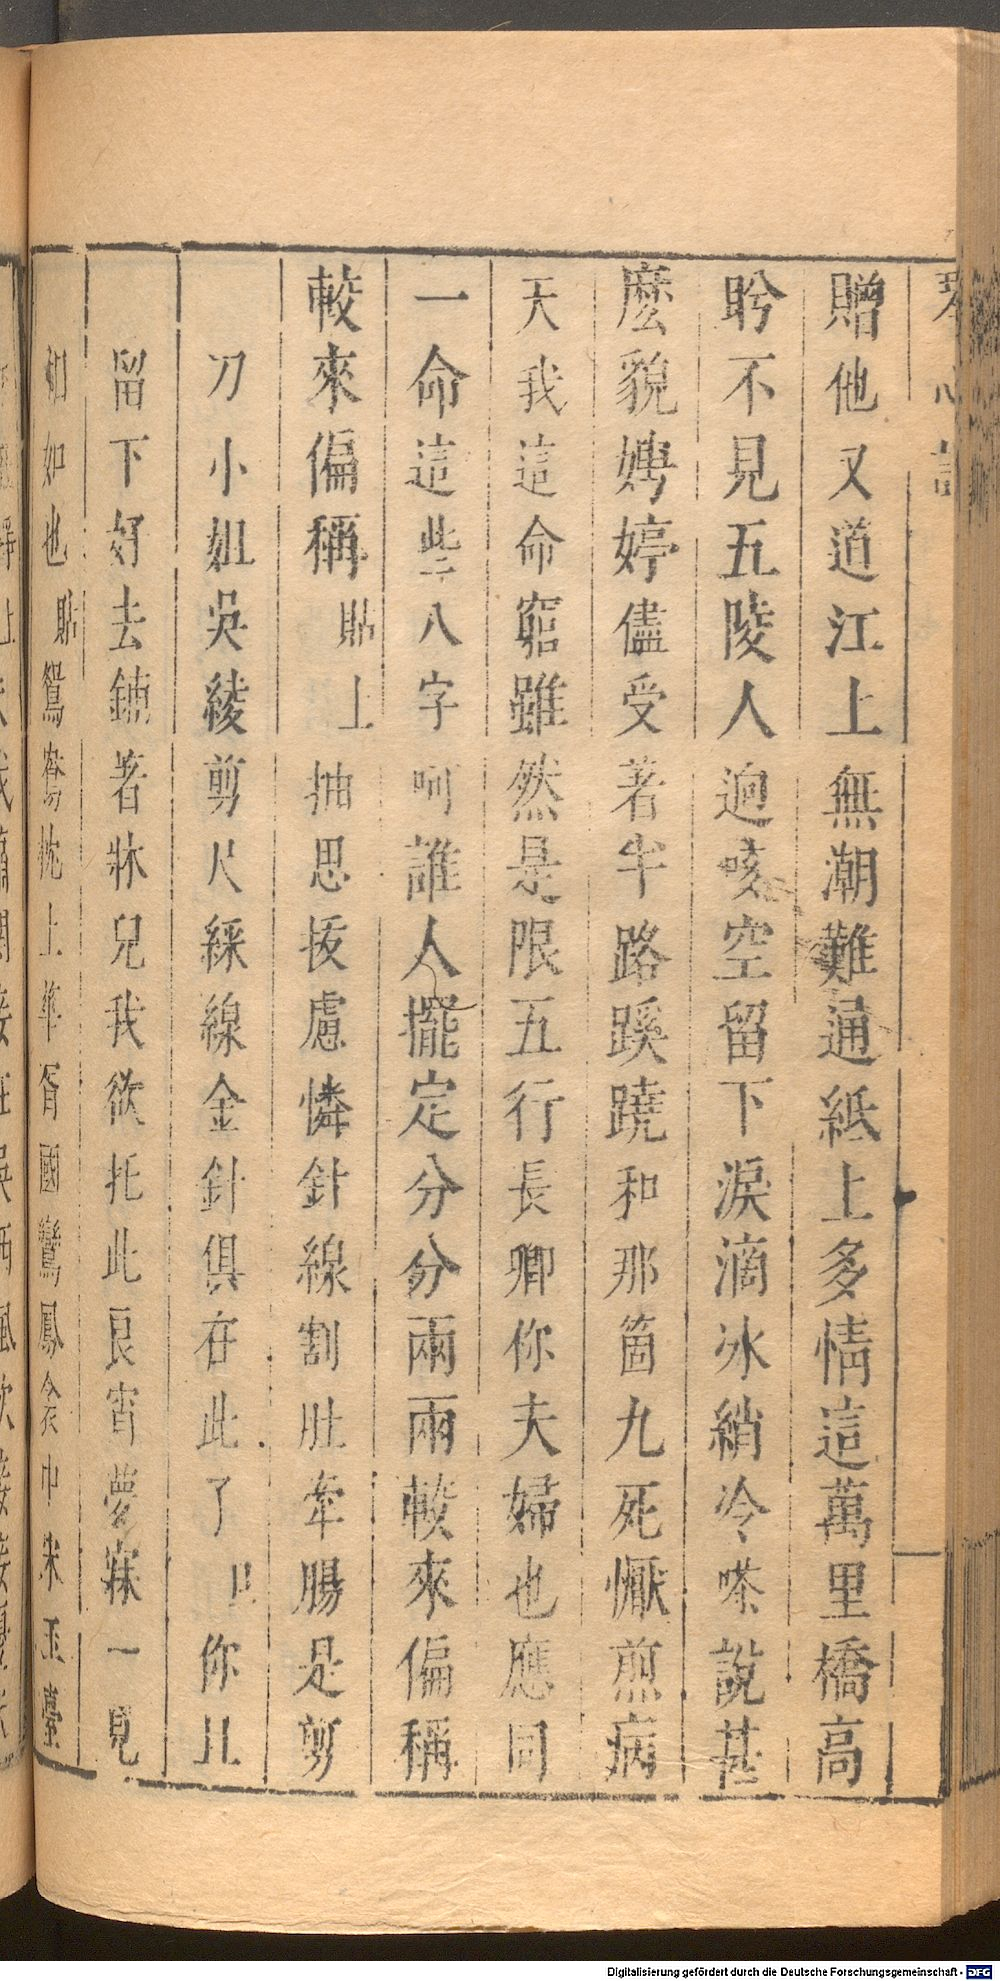 琴心記
贈他又道江上無潮難通紙上多情這萬里橋高
盻不見五陵人逈咳空留下淚滴冰綃冷嗏說甚
麽貌娉婷儘受著半路蹊蹺和那箇九死懨煎病
天我這命窮雖然是限五行長卿你夫婦也應同
一命這些八字呵誰人擺定分分兩兩較來偏稱
較來偏稱貼上抽思拔慮憐針線割肚牽腸是剪
刀小姐吳綾剪尺綵線金針俱在此了旦你且
留下好去鋪著牀兒我欲托此良宵夢寐一覓
相如也貼鴛鴦枕上華胥國鸞鳳衾中宋玉臺
Digitalisierung gefördert durch die Deutsche Forschungsgemeinschaft - DFG